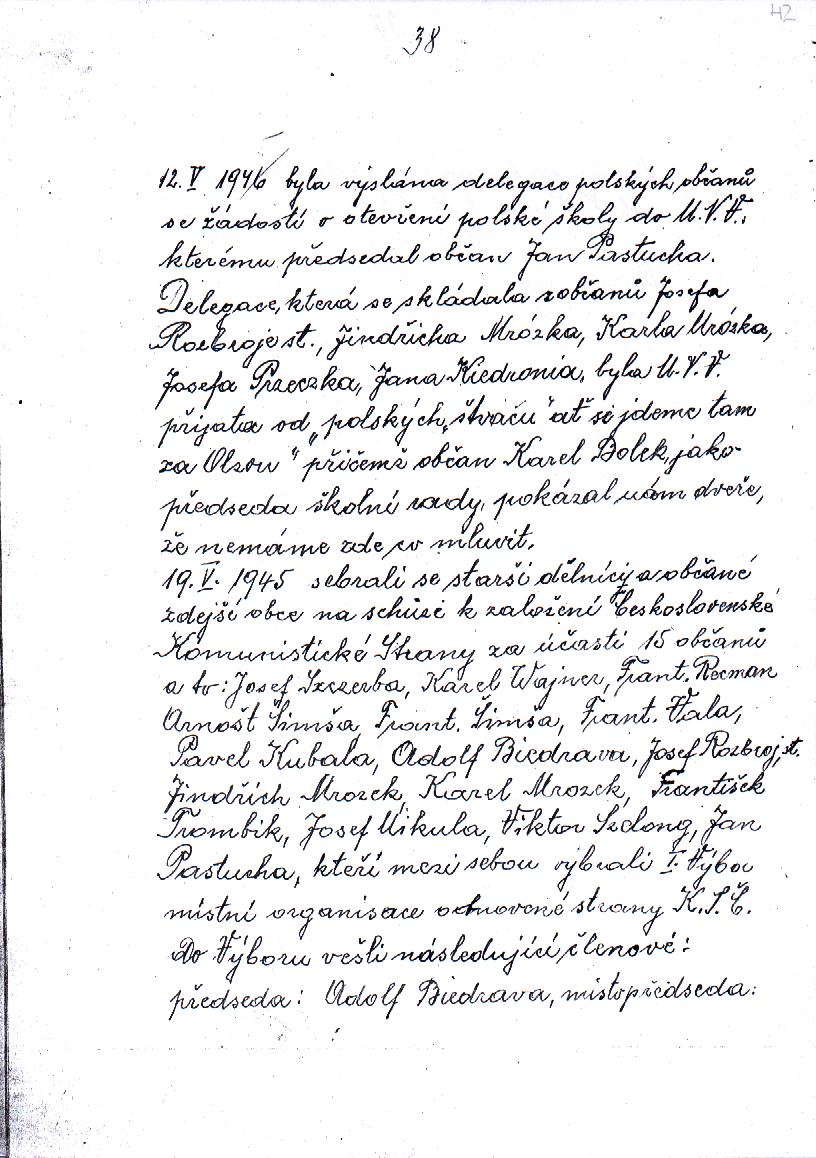 42
38
12. V 1946 byla výslána delegace polských občanů
se žádostí o otevření polské školy do M.V.V.,
kterému předsedal občan Jan Pastucha.
Delegace, která se skládala z občanů Josefa
Rozbroje st., Jindřicha Mrózka, Karla Mrózka,
Josefa Przeczka, Jana Kiedronia, byla M.V.V.
přijata od „polských štváču" ať si jdeme tam
za Olzou" přičemž občan Karel Bolek, jako
předseda školní rady, pokázal nám dveře,
že nemáme zde co mluvit.
19. V. 1945 sebrali se starší dělníci a občané
zdejší obce na schůzi k založení Československé
Komunistické Strany za účasti 15 občanů
a to: Josef Szczerba, Karel Wajner, Frant. Recman
Arnošt Šimša, Frant. Šimša, Frant. Vala,
Pavel Kubala, Adolf Biedrava, Josef Rozbroj, st.
Jindřich Mrozek, Karel Mrozek, František
Trombik, Josef Mikula, Viktor Szlong, Jan
Pastucha, kteří mezi sebou vybrali I. Výbor
místní organisace obnovené strany K.S.Č.
Do Výboru vešli následující členové:
předseda: Adolf Biedrava, místopředseda: